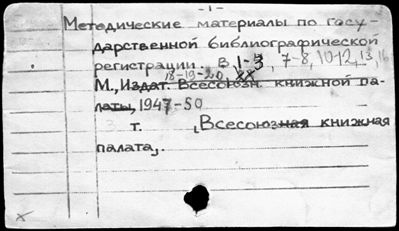 -1-
Методические материалы по госу-
дарственной библиографической
регистрации. В. 1-3, 7-8, 10-12, 13, 16
18-19-20, XX
М., Издат. Всесоюзн. книжной па-
латы, 1947-50
т. , Всесоюзная книжная
палата,.